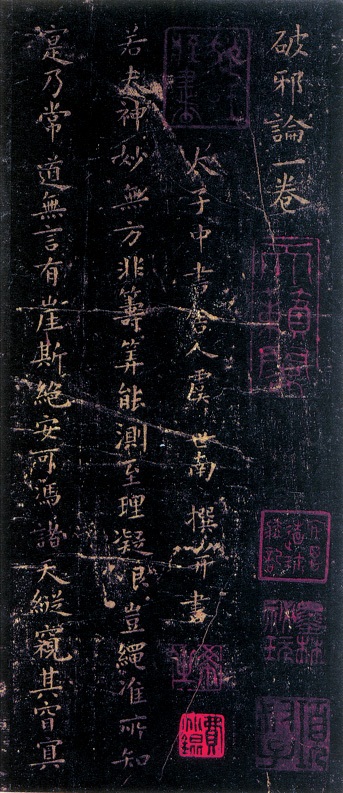 破邪論一卷
太子中書舍人虞世南撰并書
若夫神妙無方非籌筭能測至理凝邈豈繩准所知
寔乃常道無言有崖斯絕安可憑諸天縱窺其窅冥